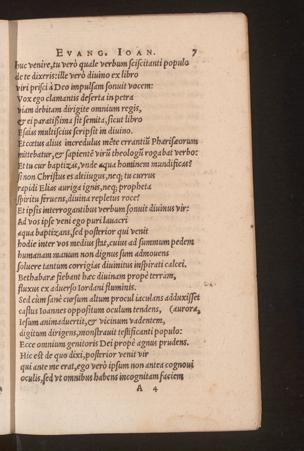 EVANG. IOAN. 7
huc venire, tu verò quale verbum sciscitanti populo
de te dixeris: ille verò diuino ex libro
viri prisci à Deo impulsam sonuit vocem:
Vox ego clamantis deserta in petra
viam debitam dirigite omnium regis,
& ei paratißima sit semita, sicut libro
Esaias multiscius scripsit in diuino.
Et cœtus alius incredulus mēte errantiū Pharisæorum
mittebatur, & sapientē virū theologū rogabat verbo:
Et tu cur baptizas, vnde aqua hominem mundificas?
si non Christus es altiiugus, neq; tu currus
rapidi Elias auriga ignis, neq; propheta
spiritu feruens, diuina repletus voce?
Et ipsis interrogantibus verbum sonuit diuinus vir:
Ad vos ipse veni ego puri lauacri
aqua baptizans, sed posterior qui venit
hodie inter vos medius stat, cuius ad summum pedem
humanam manum non dignus sum admouens
soluere tantum corrigias diuinitus inspirati calcei.
Bethabaræ fiebant hæc diuinam propè terram,
fluxus ex aduerso Iordani fluminis.
Sed cùm sanè cursum altum procul iaculans adduxisset
castus Ioannes oppositum oculum tendens, (aurora,
Iesum animaduertit, & vicinum vadentem,
digitum dirigens, monstrauit testificanti populo:
Ecce omnium genitoris Dei propè agnus prudens.
Hic est de quo dixi, posterior venit vir
qui ante me erat, ego verò ipsum non antea cognoui
oculis, sed vt omnibus habens incognitam faciem
A 4